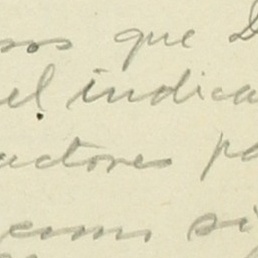 sos que D
el indica
actores pa
como si